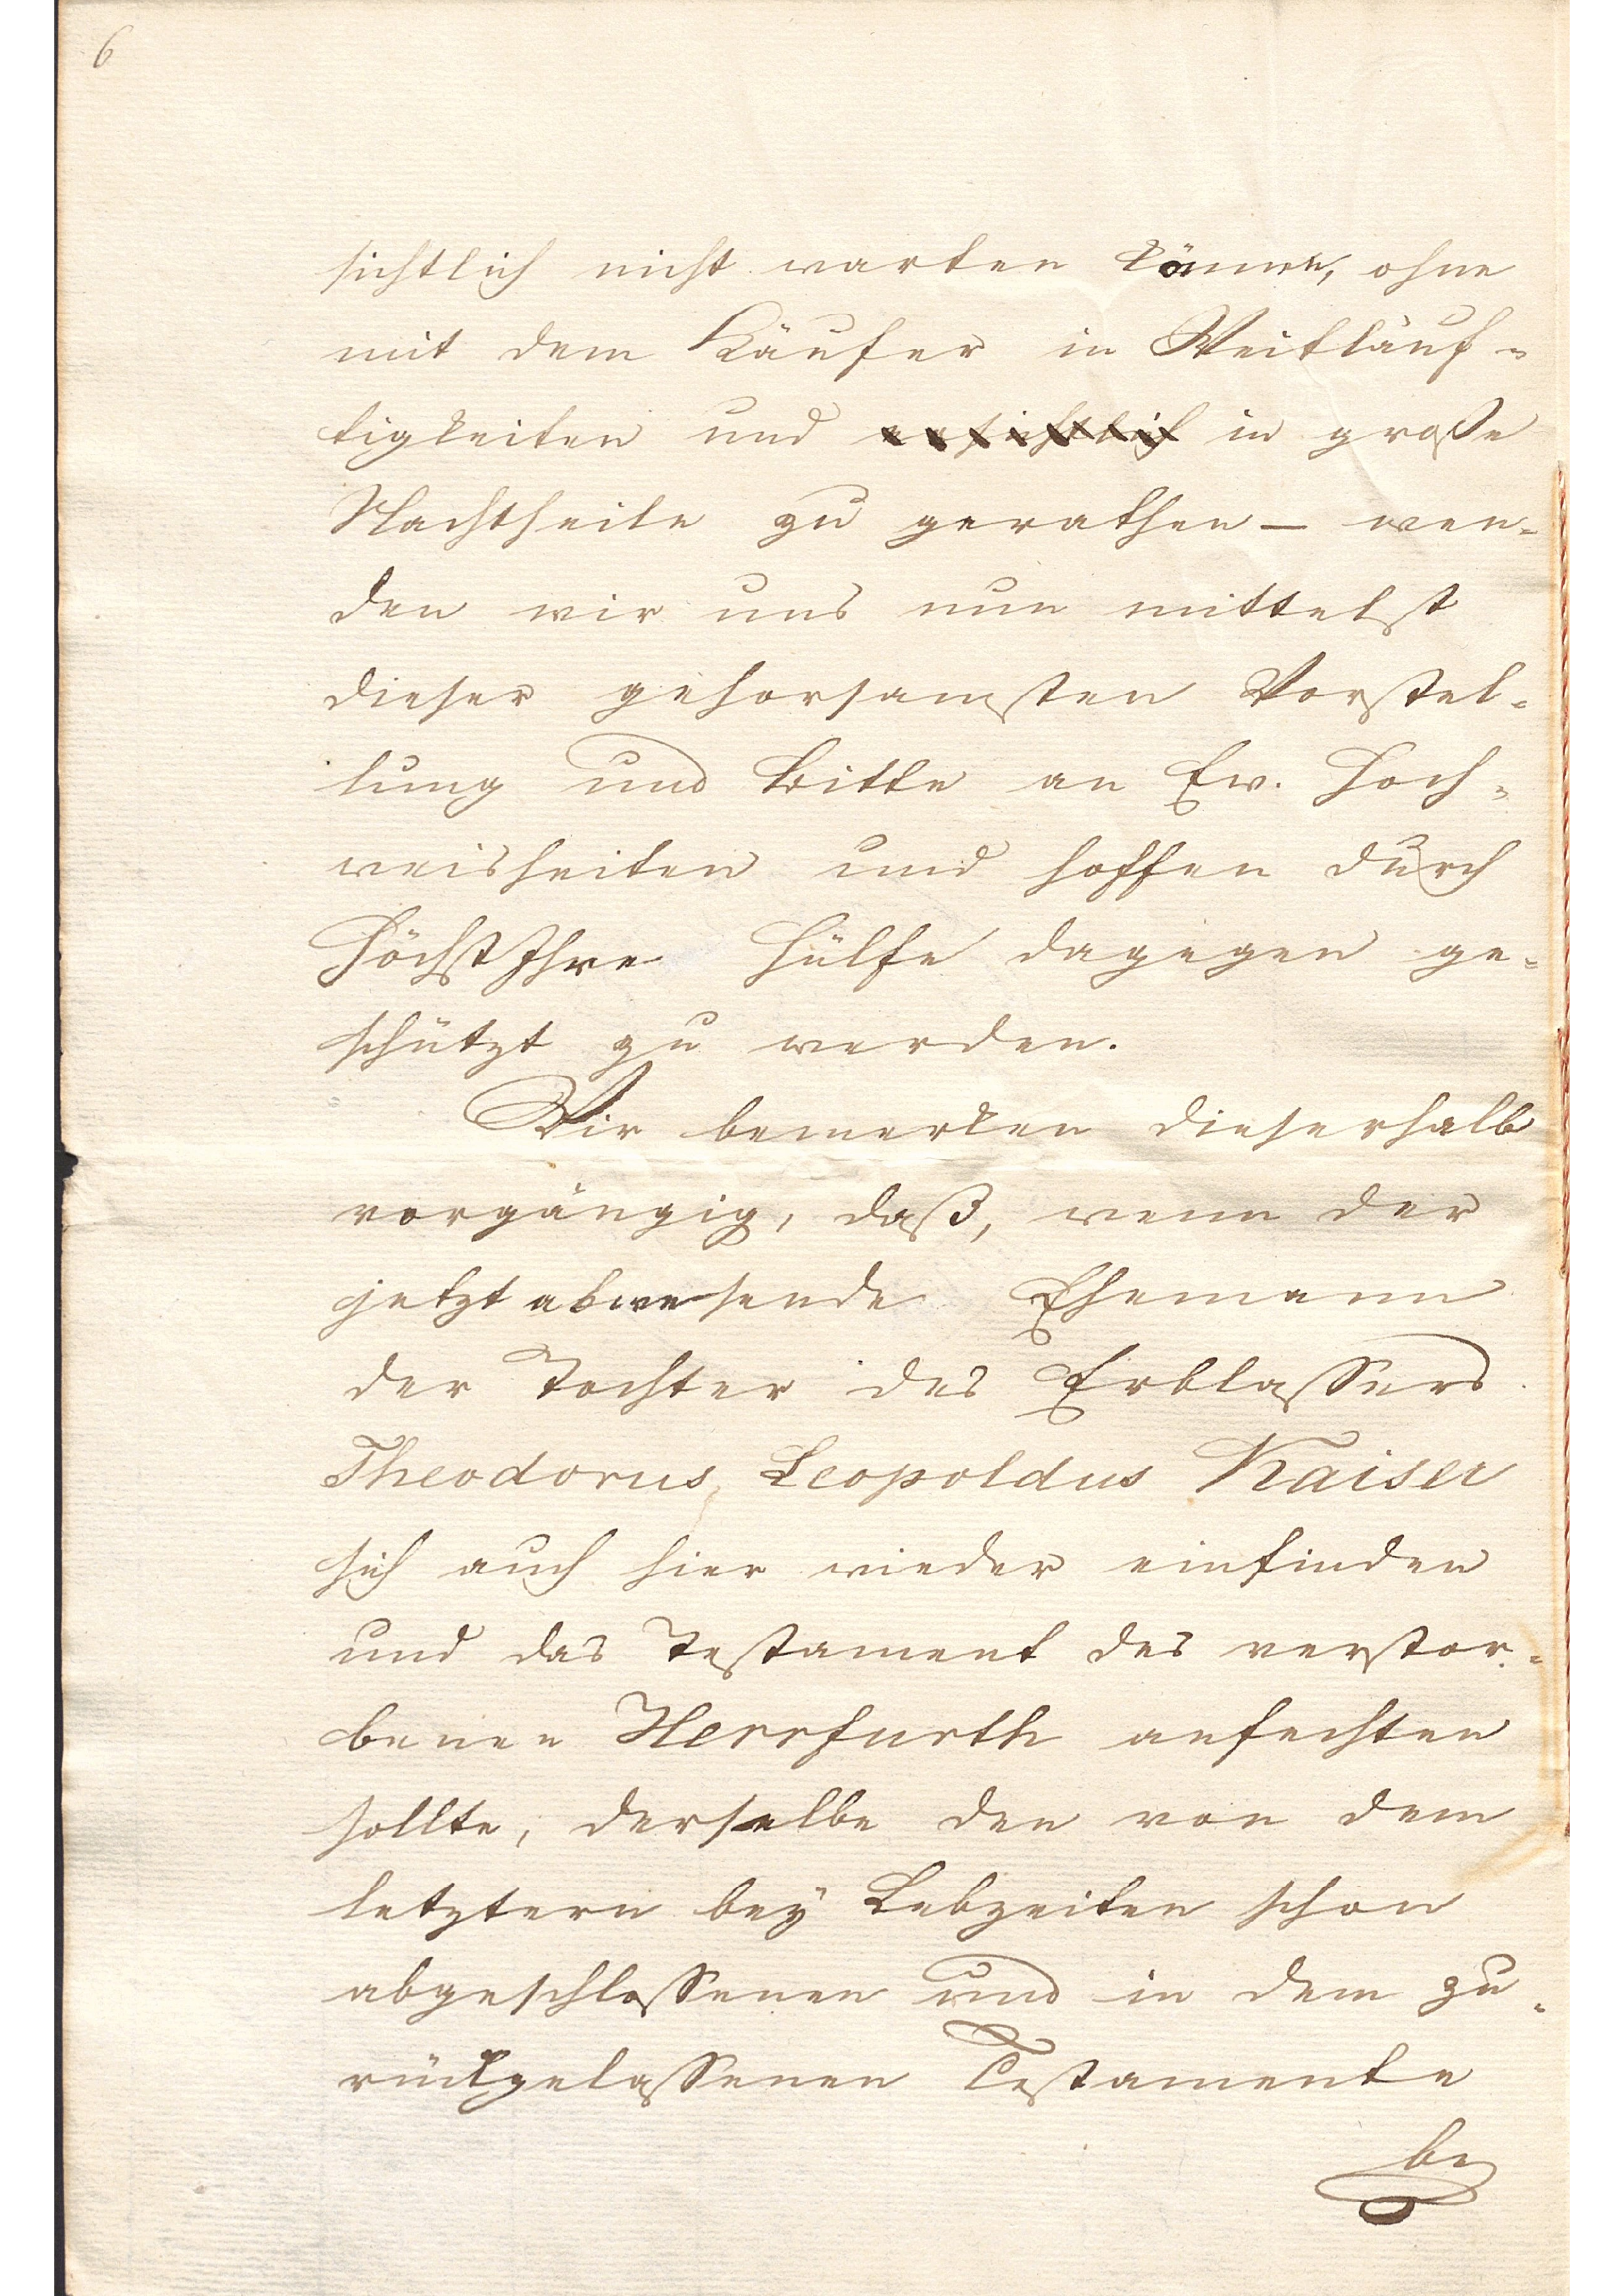 6
sichtlich nicht warten können, ohne
mit dem Käufer in Weitläuf-
tigkeiten und in große
Nachtheile zu gerathen – wen-
den wir uns nun mittelst
dieser gehorsamsten Vorstel-
lung und Bitte an Ew. Hoch-
weisheiten und hoffen durch
HöchstIhre Hülfe dagegen ge-
schützt zu werden.
Wir bemerken dieserhalb
vorgängig, daß, wenn der
jetzt abwesende Ehemann
der Tochter des Erblassers
Theodorus Leopoldus Kaiser
sich auch hier wieder einfinden
und das Testament des verstor-
benen Herrfurth anfechten
sollte, derselbe den von dem
letztern bey Lebzeiten schon
abgeschlossenen und in dem zu-
rückgelassenen Testamente
be